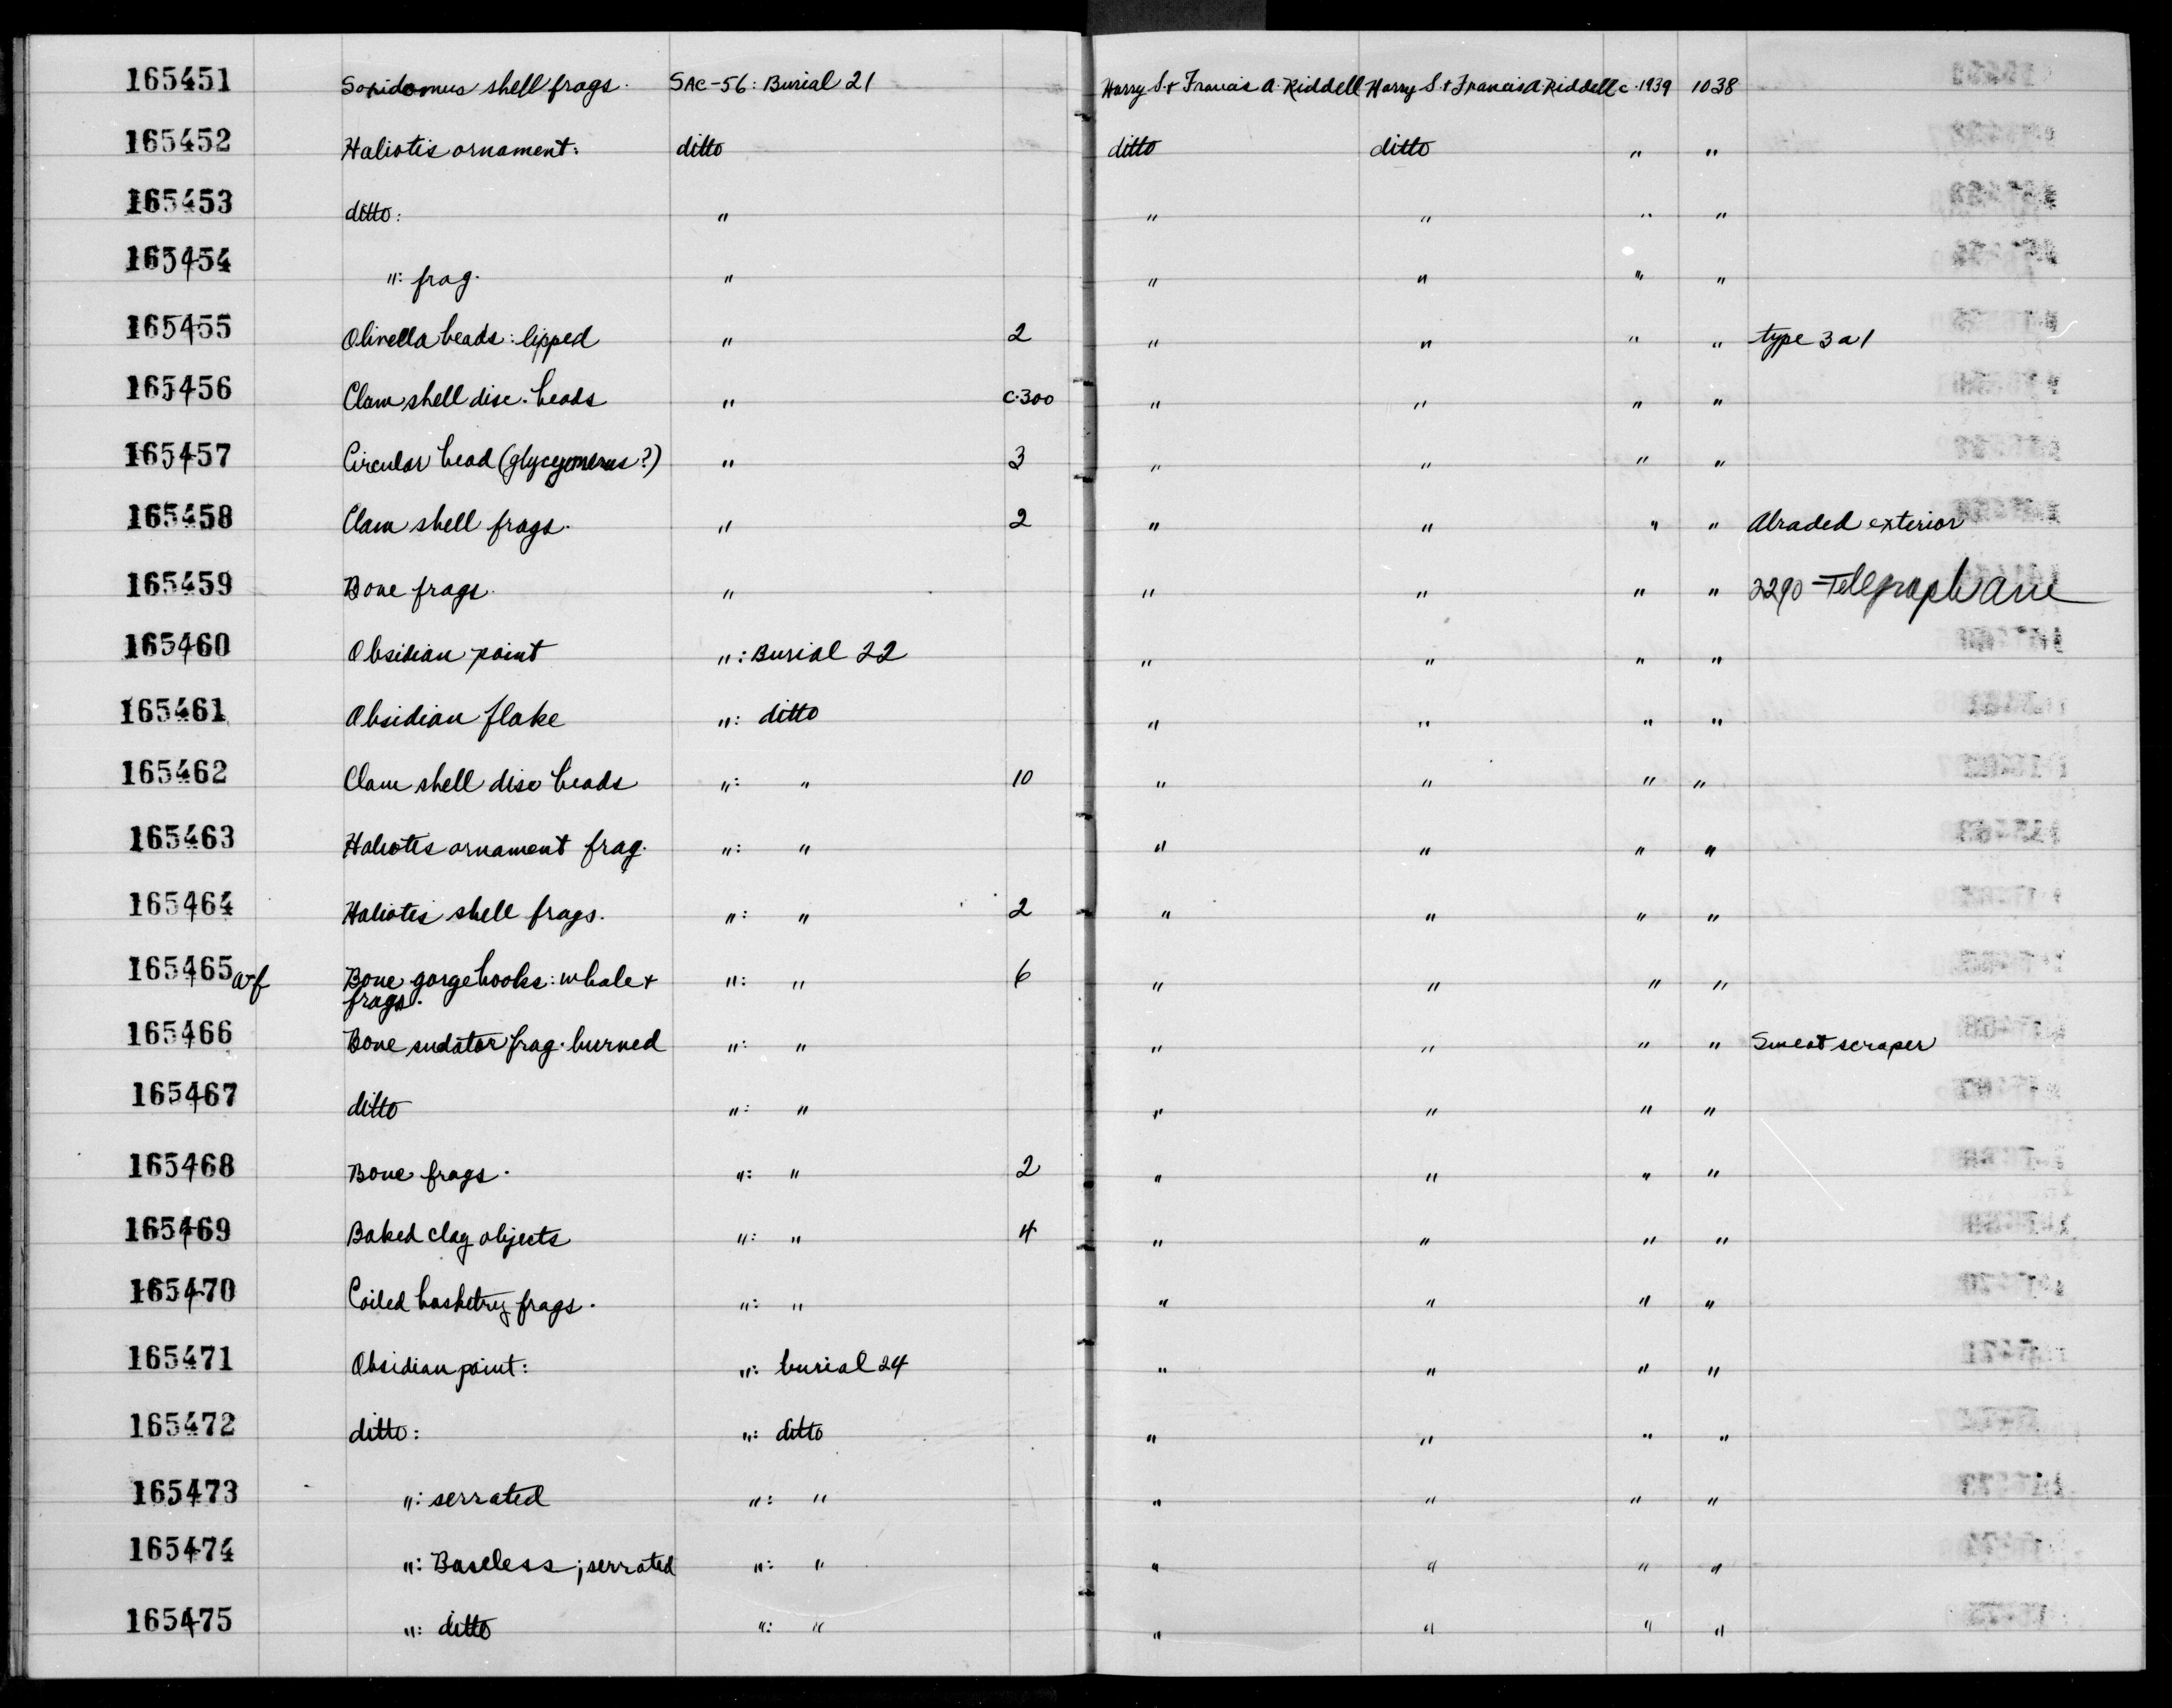 165451 Saxidomus shell frags. SAC-56: Burial 21 Harry S. + Francis A. Riddell Harry S. + Francis A. Riddell c. 1939 1038
165452 Haliotis ornament: ditto ditto ditto " "
165453 ditto: " " " " "
165454 ": frag. " " " " "
165455 Olivella beads: lipped " 2 " " " " type 3a1
165456 Clam shell disc. beads " c.300 " " " "
165457 Circular bead (glycymerus?) " 3 " " " "
165458 Clam shell frags. " 2 " " " " Abraded exterior
165459 Bone frags. " " " " " 2290 Telegraph Ave
165460 Obsidian point ": Burial 22 " " " "
165461 Obsidian flake ": ditto " " " "
165462 Clam shell disc beads ": " 10 " " " "
165463 Haliotis ornament frag. ": " " " " "
165464 Haliotis shell frags. ": " 2 " " " "
165465 a-f Bone gorge hooks: whole + ": " 6 " " " "
frags.
165466 Bone sudator frag. burned ": " " " " " Sweat scraper
165467 ditto ": " " " " "
165468 Bone frags. ": " 2 " " " "
165469 Baked clay objects ": " 4 " " " "
165470 Coiled basketry frags. ": " " " " "
165471 Obsidian point: ": burial 24 " " " "
165472 ditto: ": ditto " " " "
165473 ": serrated ": " " " " "
165474 ": Baseless; serrated ": " " " " "
165475 ": ditto ": " " " " "